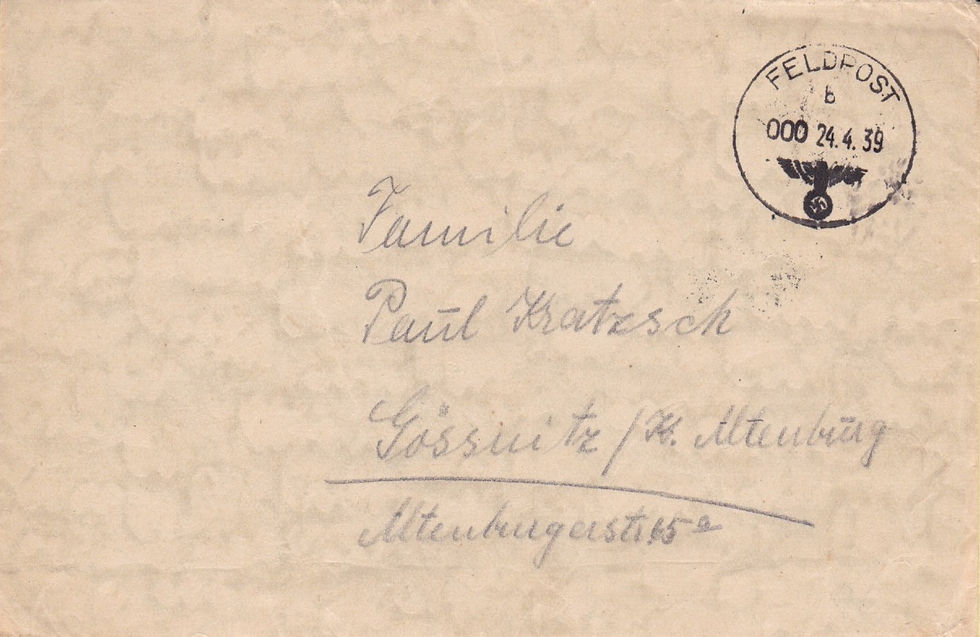 FELDPOST
b
000 24.4.39
Familie
Paul Kratzsch
Gössnitz / K. Altenburg
Altenburgerstr.